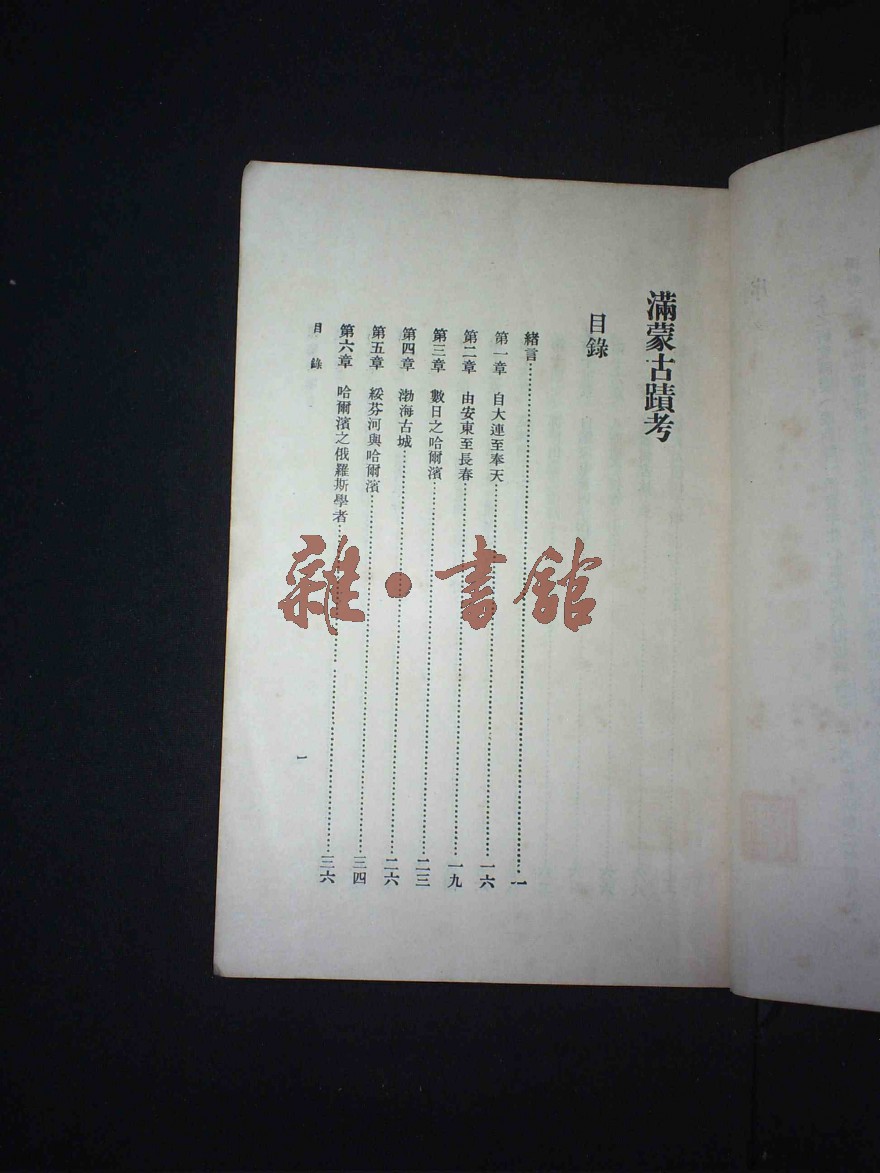 滿蒙古蹟考
目錄
緒言…………一
第一章 自大連至奉天…………一六
第二章 由安東至長春…………一九
第三章 數日之哈爾濱…………二三
第四章 渤海古城…………二六
第五章 綏芬河與哈爾濱…………三四
第六章 哈爾濱之俄羅斯學者…………三六
目錄
一
雜·書館